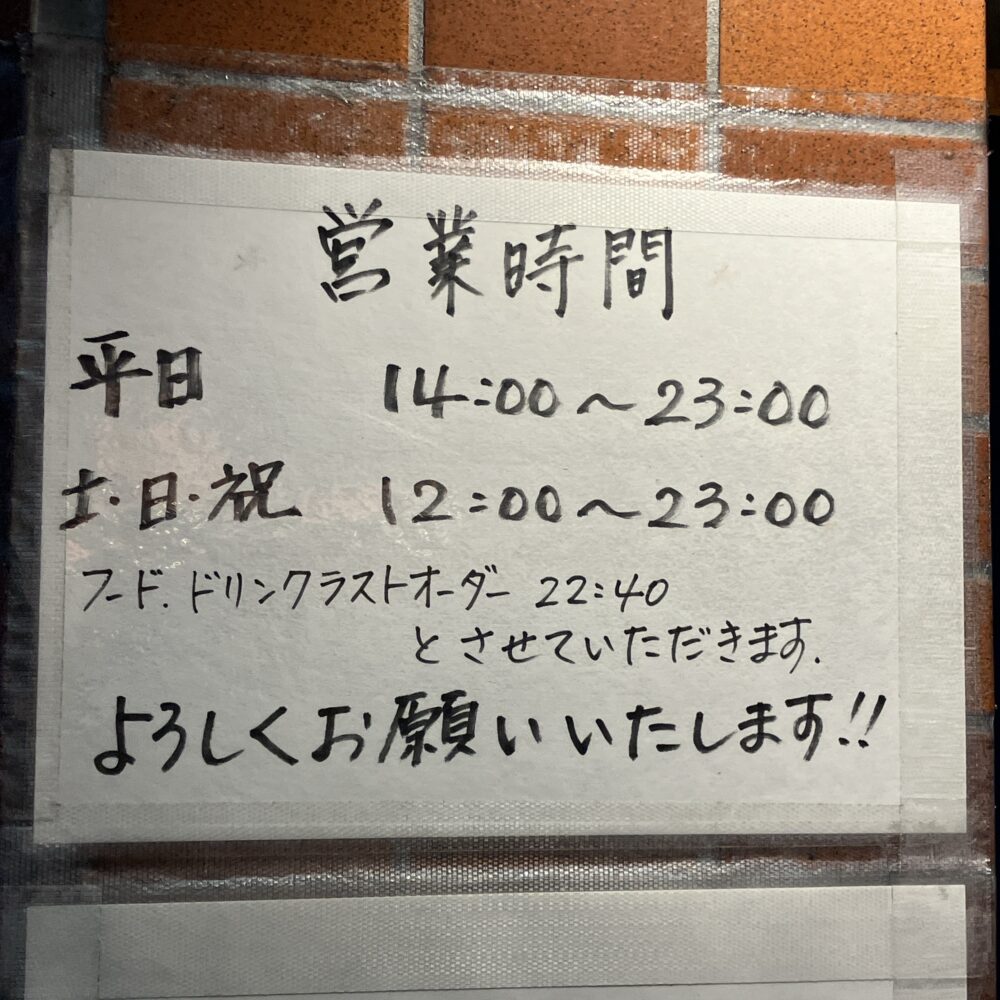 営業時間
平日 14:00～23:00
土・日・祝 12:00～23:00
フード.ドリンクラストオーダー 22:40
とさせていただきます.
よろしくお願いいたします!!